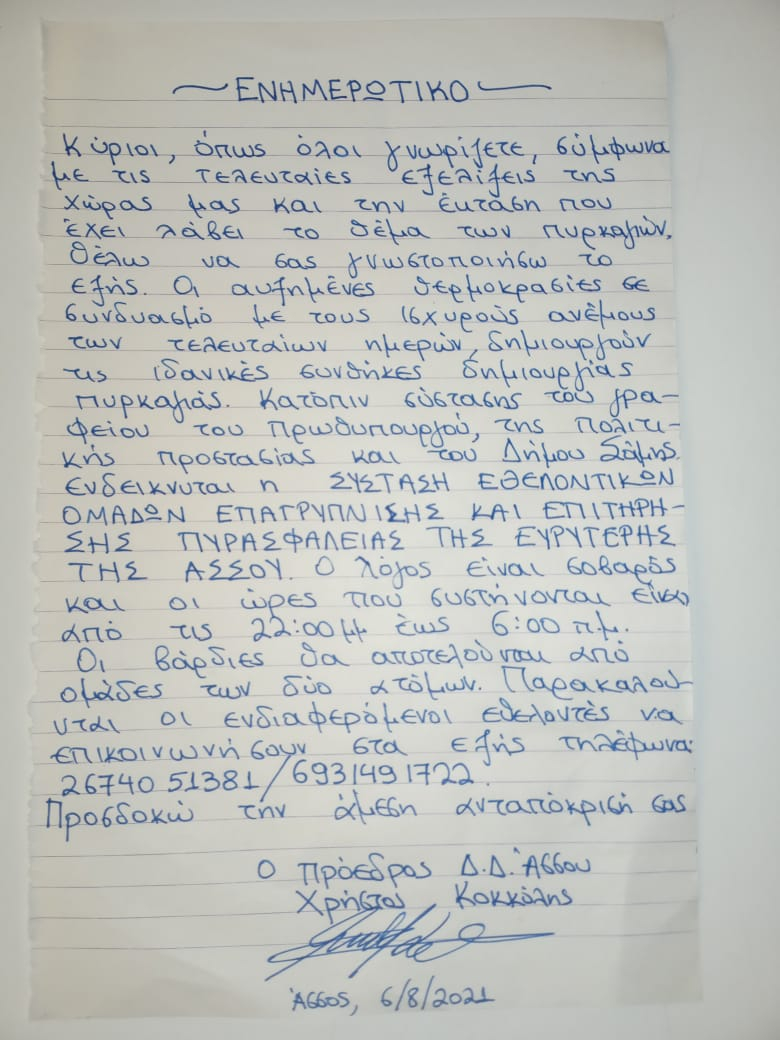 ΕΝΗΜΕΡΩΤΙΚΟ
Κύριοι, όπως όλοι γνωρίζετε, σύμφωνα
με τις τελευταίες εξελίξεις της
χώρας μας και την έκταση που
έχει λάβει το θέμα των πυρκαγιών,
θέλω να σας γνωστοποιήσω το
εξής. Οι αυξημένες θερμοκρασίες σε
συνδυασμό με τους ισχυρούς ανέμους
των τελευταίων ημερών, δημιουργούν
τις ιδανικές συνθήκες δημιουργίας
πυρκαγιάς. Κατόπιν σύστασης του γρα-
φείου του Πρωθυπουργού, της Πολιτι-
κής προστασίας και του Δήμου Σάμης.
Ενδείκνυται η ΣΥΣΤΑΣΗ ΕΘΕΛΟΝΤΙΚΩΝ
ΟΜΑΔΩΝ ΕΠΑΓΡΥΠΝΙΣΗΣ ΚΑΙ ΕΠΙΤΗΡΗ-
ΣΗΣ ΠΥΡΑΣΦΑΛΕΙΑΣ ΤΗΣ ΕΥΡΥΤΕΡΗΣ
ΤΗΣ ΑΣΣΟΥ. Ο λόγος είναι σοβαρός
και οι ώρες που συστήνονται είναι
από τις 22:00μμ έως 6:00 π.μ.
Οι βάρδιες θα αποτελούνται από
ομάδες των δύο ατόμων. Παρακαλού-
νται οι ενδιαφερόμενοι εθελοντές να
επικοινωνήσουν στα εξής τηλέφωνα:
26740 51381/6931491722.
Προσδοκώ την άμεση ανταπόκρισή σας
Ο Πρόεδρος Δ.Δ. Άσσου
Χρήστος Κοκκόλης
Άσσος, 6/8/2021